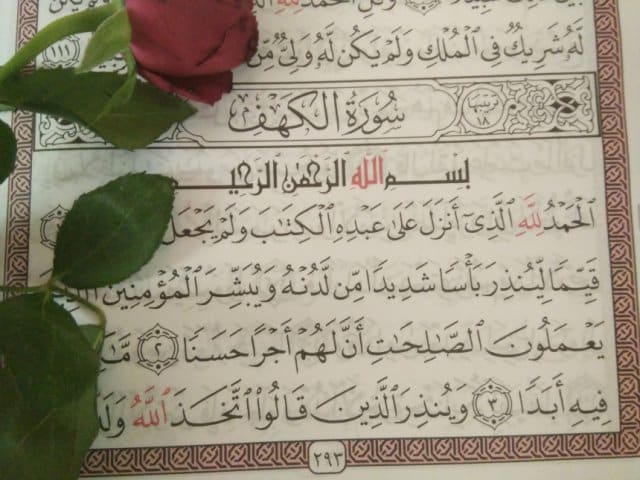 الْحَمْدُ لِلَّهِ
لَّهُ شَرِيكٌ فِي الْمُلْكِ وَلَمْ يَكُن لَّهُ وَلِيٌّ مِّنَ
١١١
سُورَةُ الْكَهْفِ
ترتيبها ١٨
بِسْمِ اللَّهِ الرَّحْمَٰنِ الرَّحِيمِ
الْحَمْدُ لِلَّهِ الَّذِي أَنزَلَ عَلَىٰ عَبْدِهِ الْكِتَابَ وَلَمْ يَجْعَل
قَيِّمًا لِّيُنذِرَ بَأْسًا شَدِيدًا مِّن لَّدُنْهُ وَيُبَشِّرَ الْمُؤْمِنِينَ
يَعْمَلُونَ الصَّالِحَاتِ أَنَّ لَهُمْ أَجْرًا حَسَنًا ٢
فِيهِ أَبَدًا ٣ وَيُنذِرَ الَّذِينَ قَالُوا اتَّخَذَ اللَّهُ
٢٩٣